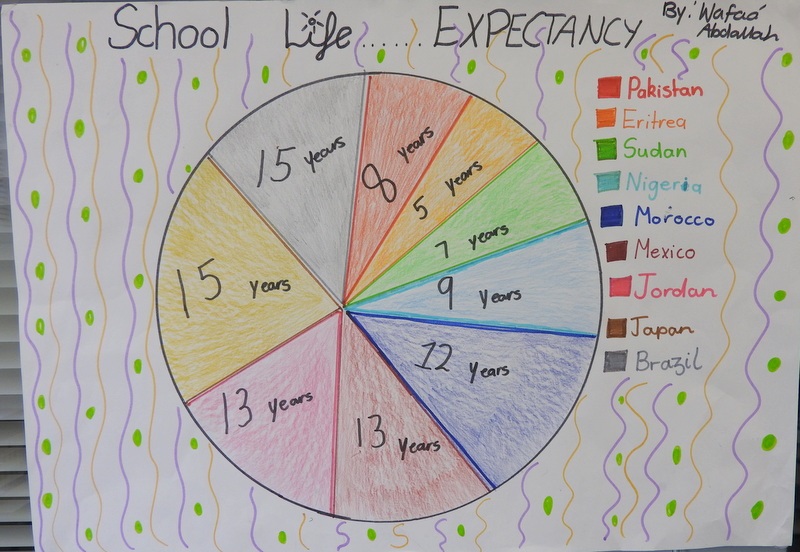 School Life...... EXPECTANCY
By: Wafaa'
Abdallah
Pakistan
Eritrea
Sudan
Nigeria
Morocco
Mexico
Jordan
Japan
Brazil
15 years
8 years
5 years
7 years
9 years
12 years
13 years
13 years
15 years